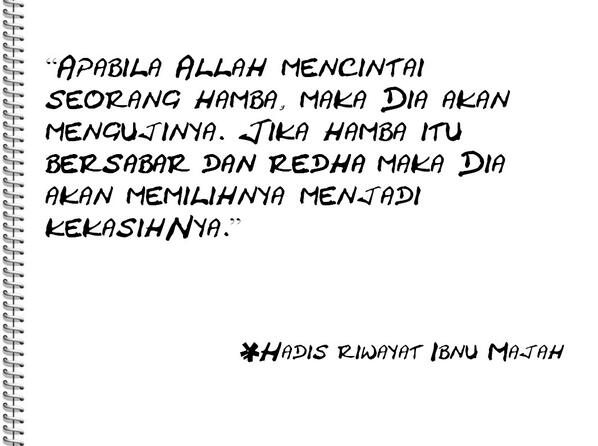 “Apabila Allah mencintai
seorang hamba, maka Dia akan
mengujinya. Jika hamba itu
bersabar dan redha maka Dia
akan memilihnya menjadi
kekasihNya.”
*Hadis riwayat Ibnu Majah